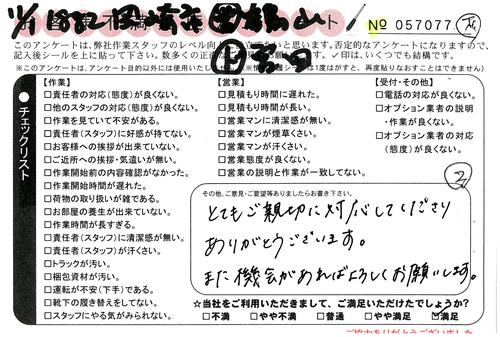 № 057077
このアンケートは、弊社作業スタッフのレベル向上
と思います。否定的なアンケートになりますので、
記入後シールを上に貼って下さい。
※このアンケートは、アンケート目的以外には使用いたし
チェックリスト
【作業】
□責任者の対応(態度)が良くない。
□他のスタッフの対応(態度)が良くない。
□作業を見ていて不安がある。
□責任者(スタッフ)に好感が持てない。
□お客様への挨拶が出来ていない。
□ご近所への挨拶・気遣いが無い。
□作業開始前の内容確認がなかった。
□作業開始時間が遅れた。
□荷物の取り扱いが雑である。
□お部屋の養生が出来ていない。
□作業時間が長すぎる。
□責任者(スタッフ)に清潔感が無い。
□責任者(スタッフ)が汗くさい。
□トラックが汚い。
□梱包資材が汚い。
□運転が不安(下手)である。
□靴下の履き替えをしてない。
□スタッフにやる気がみられない。
【営業】
□見積もり時間に遅れた。
□見積もり時間が長い。
□営業マンに清潔感が無い。
□営業マンが煙草くさい。
□営業マンが汗くさい。
□営業態度が良くない。
□営業の説明と作業が一致してない。
【受付・その他】
□電話の対応が良くない。
□オプション業者の説明
・作業が良くない。
□オプション業者の対応
(態度)が良くない。
その他、ご意見・ご要望等ありましたらお書き下さい。
とてもご親切に対応してくださり
ありがとうございます。
また機会があればよろしくお願いします。
☆当社をご利用いただきまして、ご満足いただけたでしょうか?
□不満 □やや不満 □普通 □やや満足 ☑満足
ご協力ありがとうございました